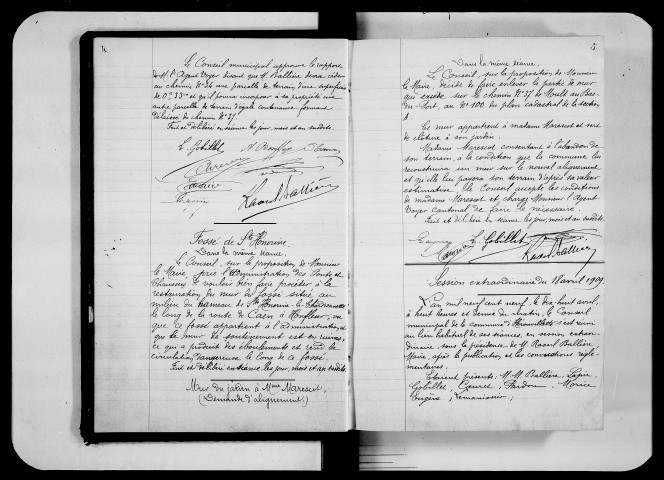 4
Le Conseil municipal approuve le rapport
de M. l'Agent Voyer disant que M. Ballière devra céder
au chemin N° 26 une parcelle de terrain d'une superficie
de et qu'il pourra incorporer à sa propriété une
autre parcelle de terrain d'égale contenance formant
délaissé du chemin N° 37.
Fait et délibéré en séance les jour, mois et an susdits.
E. Gobillet
Raoul Ballière
Fossé de Ste Honorine
Dans la même séance,
Le Conseil, sur la proposition de Monsieur
le Maire, prie l'administration des Ponts et
Chaussées de vouloir bien faire procéder à la
restauration du mur du fossé situé au
milieu du hameau de Ste Honorine-la-Chardonnette
le long de la route de Caen à Honfleur, vu
que ce fossé appartient à l'administration, et
que le mur de soutènement est en ruines,
ce qui a produit des éboulements et rend la
circulation dangereuse le long de ce fossé.
Fait et délibéré en séance, les jour, mois et an susdits.
Mur du jardin à Mme Marescot
(Demande d'alignement)
5
Dans la même séance,
Le Conseil, sur la proposition de Monsieur
le Maire, décide de faire enlever la partie de mur
qui excède sur le chemin N° 37 de Moult au Bac-
du-Port, au N° 100 du plan cadastral de la section
Ce mur appartient à madame Marescot et sert
de clôture à son jardin.
Madame Marescot consentant à l'abandon de
son terrain, à la condition que la commune lui
reconstruira un mur sur le nouvel alignement
et qu'elle lui payera son terrain d'après sa valeur
estimative, le Conseil accepte les conditions
de madame Marescot et charge Monsieur l'Agent
Voyer cantonal de faire le nécessaire.
Fait et délibéré en séance, les jour, mois et an susdits.
E. Gobillet
Raoul Ballière
Session extraordinaire du 18 avril 1909.
L'an mil neuf cent neuf, le dix-huit avril,
à huit heures et demie du matin, le Conseil
municipal de la commune d'Hérouvillette s'est réuni
au lieu habituel de ses séances, en session extraor-
dinaire sous la présidence de M. Raoul Ballière
Maire, après la publication et les convocations régle-
mentaires.
Étaient présents: M.M. Ballière,
Gobillet, Morice
Eugène, Lemansois,